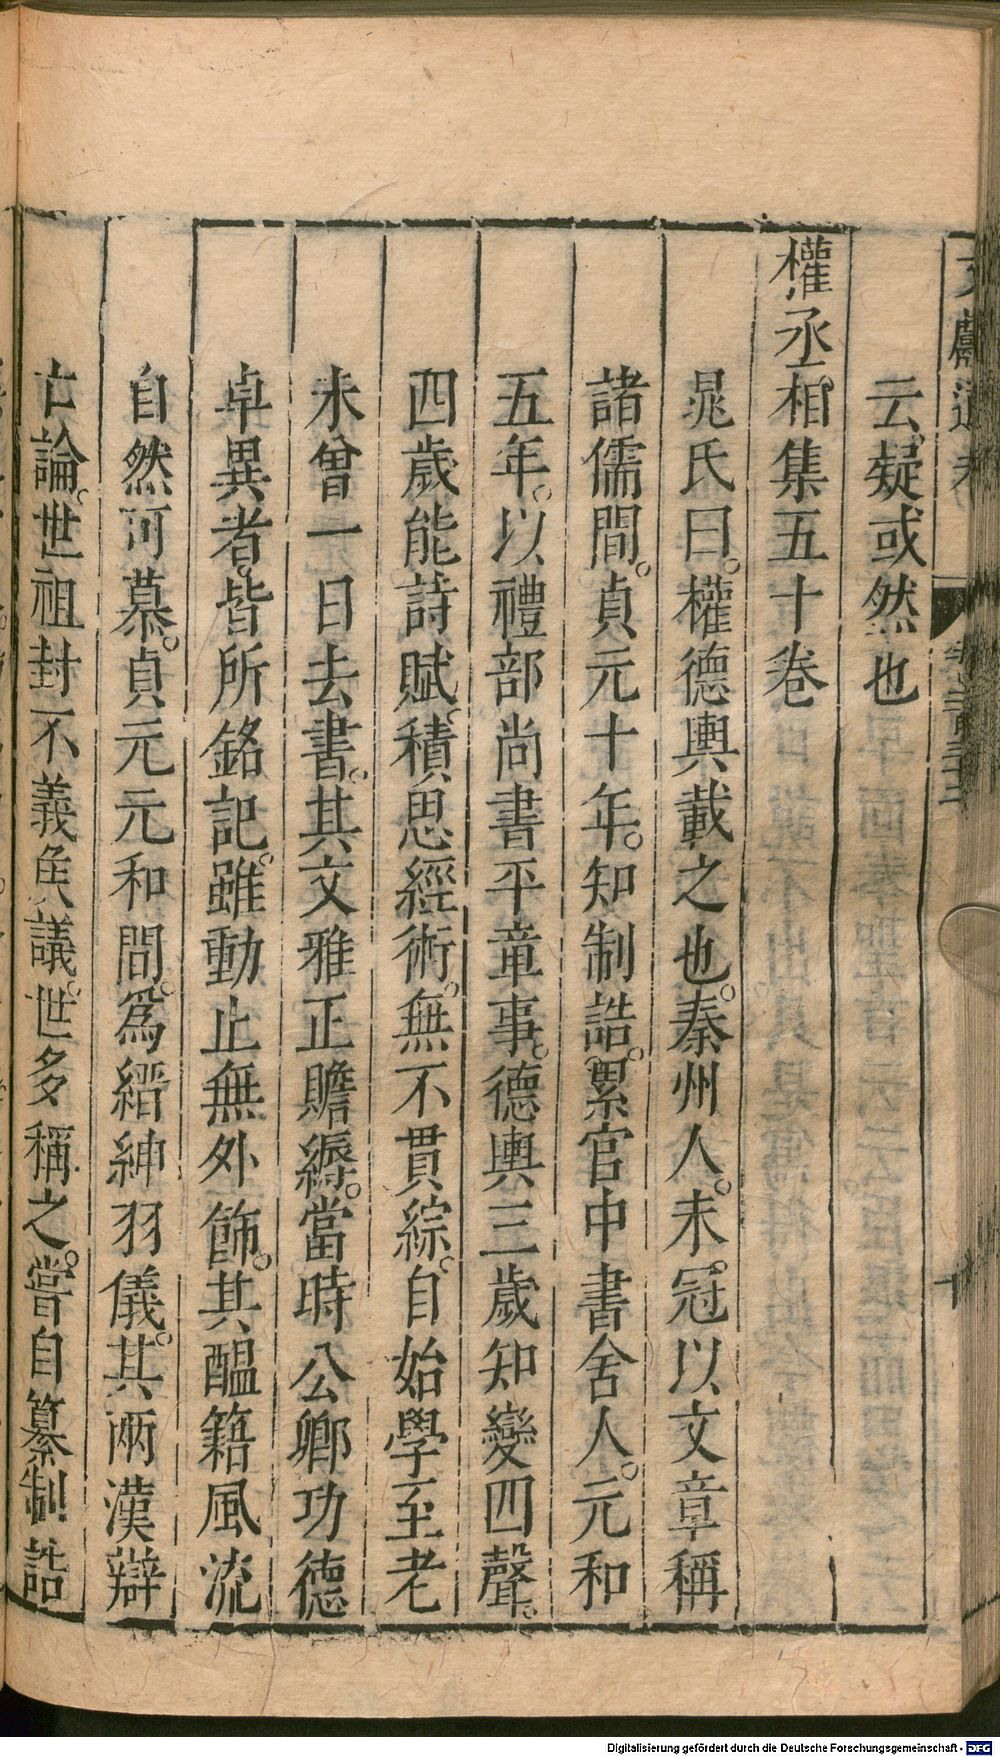 文獻通考
云疑或然也
權丞相集五十卷
晁氏曰。權德輿載之也。秦州人。未冠以文章稱
諸儒間。貞元十年。知制誥。累官中書舍人。元和
五年。以禮部尚書平章事。德輿三歲知變四聲。
四歲能詩賦。積思經術。無不貫綜。自始學至老
未曾一日去書。其文雅正贍縟。當時公卿功德
卓異者。皆所銘記。雖動止無外飾。其醞籍風流
自然可慕。貞元元和間。爲縉紳羽儀。其兩漢辯
亡論。世祖封不義侯議。世多稱之。嘗自纂制誥
Digitalisierung gefördert durch die Deutsche Forschungsgemeinschaft - DFG